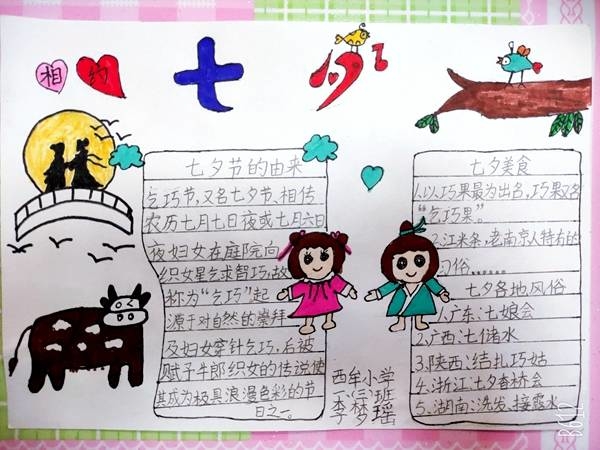 相约
七夕
七夕节的由来
乞巧节,又名七夕节、相传
农历七月七日夜或七月六日
夜妇女在庭院向
织女星乞求智巧,故
称为“乞巧”起
源于对自然的崇拜
及妇女穿针乞巧,后被
赋予牛郎织女的传说使
其成为极具浪漫色彩的节
日之一。
七夕美食
1.以巧果最为出名,巧果又名
“乞巧果”。
2.江米条,老南京人特有的
习俗……
七夕各地风俗
1.广东:七娘会
2.广西:七储水
3.陕西:结扎巧姑
4.浙江:七夕香桥会
5.湖南:洗发、接露水
西牟小学
李梦瑶